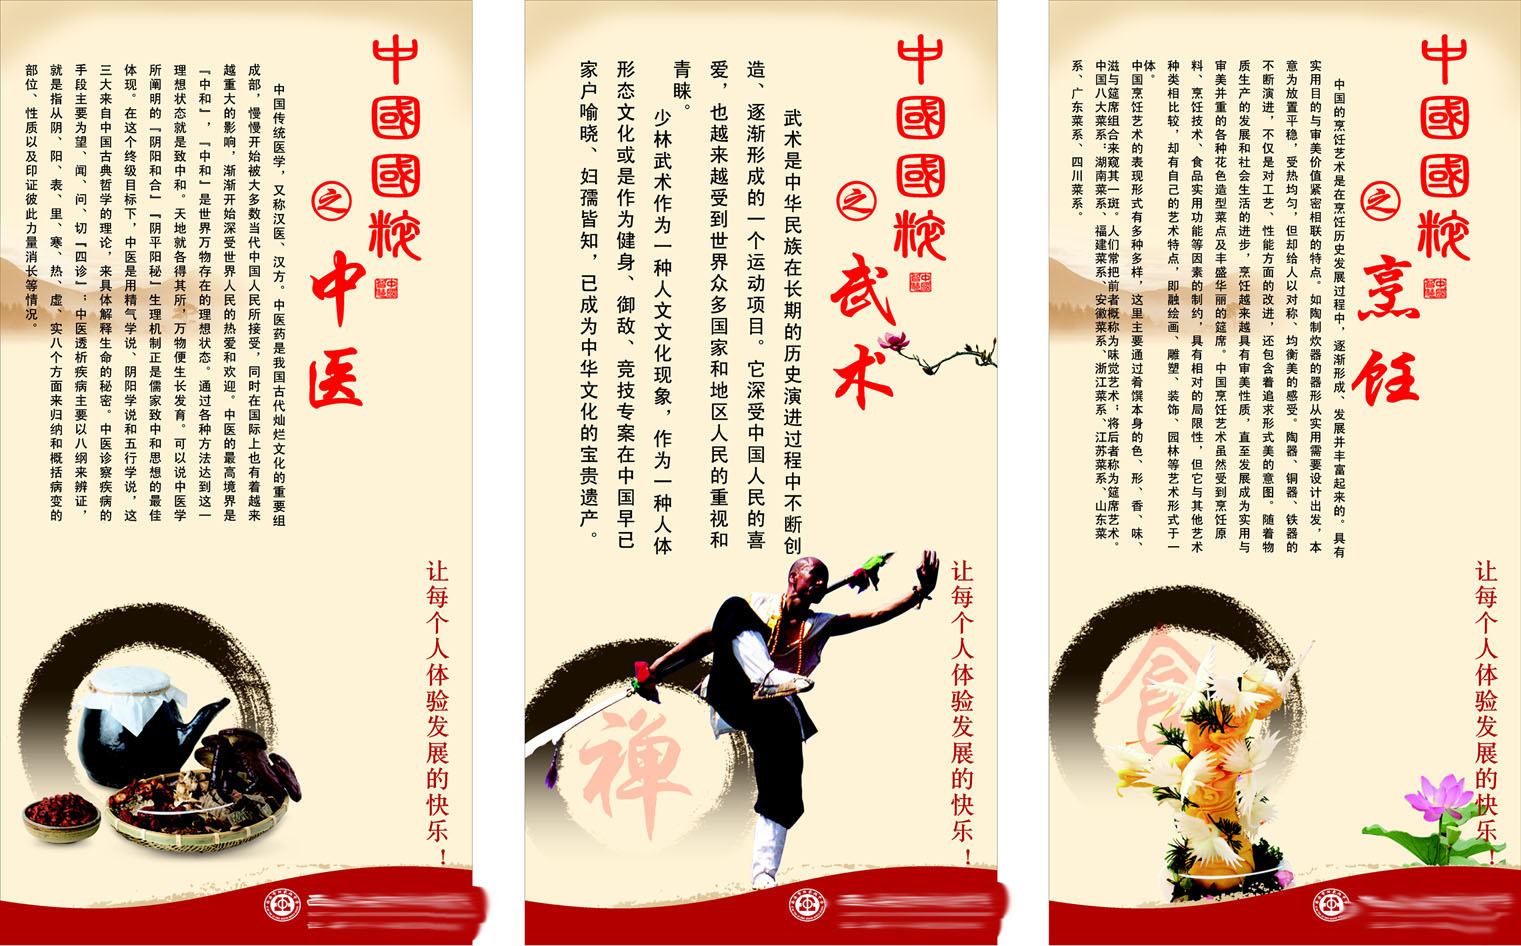 中國國粹
之
中医
中国传统医学，又称汉医、汉方。中医药是我国古代灿烂文化的重要组
成部，慢慢开始被大多数当代中国人民所接受，同时在国际上也有着越来
越重大的影响，渐渐开始深受世界人民的热爱和欢迎。中医的最高境界是
『中和』，『中和』是世界万物存在的理想状态。通过各种方法达到这一
理想状态就是致中和。天地就各得其所，万物便生长发育。可以说中医学
所阐明的『阴阳和合』『阴平阳秘』生理机制正是儒家致中和思想的最佳
体现。在这个终级目标下，中医是用精气学说、阴阳学说和五行学说，这
三大来自中国古典哲学的理论，来具体解释生命的秘密。中医诊察疾病的
手段主要为望、闻、问、切『四诊』；中医透析疾病主要以八纲来辨证，
就是指从阴、阳、表、里、寒、热、虚、实八个方面来归纳和概括病变的
部位、性质以及印证彼此力量消长等情况。
让每个人体验发展的快乐！
中國國粹
之
武术
武术是中华民族在长期的历史演进过程中不断创
造、逐渐形成的一个运动项目。它深受中国人民的喜
爱，也越来越受到世界众多国家和地区人民的重视和
青睐。
少林武术作为一种人文文化现象，作为一种人体
形态文化或是作为健身、御敌、竞技专案在中国早已
家户喻晓、妇孺皆知，已成为中华文化的宝贵遗产。
禅
让每个人体验发展的快乐！
中國國粹
之
烹饪
中国的烹饪艺术是在烹饪历史发展过程中，逐渐形成、发展并丰富起来的。具有
实用目的与审美价值紧密相联的特点。如陶制炊器的器形从实用需要设计出发，本
意为放置平稳，受热均匀，但却给人以对称、均衡美的感受。陶器、铜器、铁器的
不断演进，不仅是对工艺、性能方面的改进，还包含着追求形式美的意图。随着物
质生产的发展和社会生活的进步，烹饪越来越具有审美性质，直至发展成为实用与
审美并重的各种花色造型菜点及丰盛华丽的筵席。中国烹饪艺术虽然受到烹饪原
料、烹饪技术、食品实用功能等因素的制约，具有相对的局限性，但它与其他艺术
种类相比较，却有自己的艺术特点，即融绘画、雕塑、装饰、园林等艺术形式于一
体。
中国烹饪艺术的表现形式有多种多样，这里主要通过肴馔本身的色、形、香、味、
滋与筵席组合来窥其一斑。人们常把前者概称为味觉艺术；将后者称为筵席艺术。
中国八大菜系：湖南菜系、福建菜系、安徽菜系、浙江菜系、江苏菜系、山东菜
系、广东菜系、四川菜系。
食
让每个人体验发展的快乐！